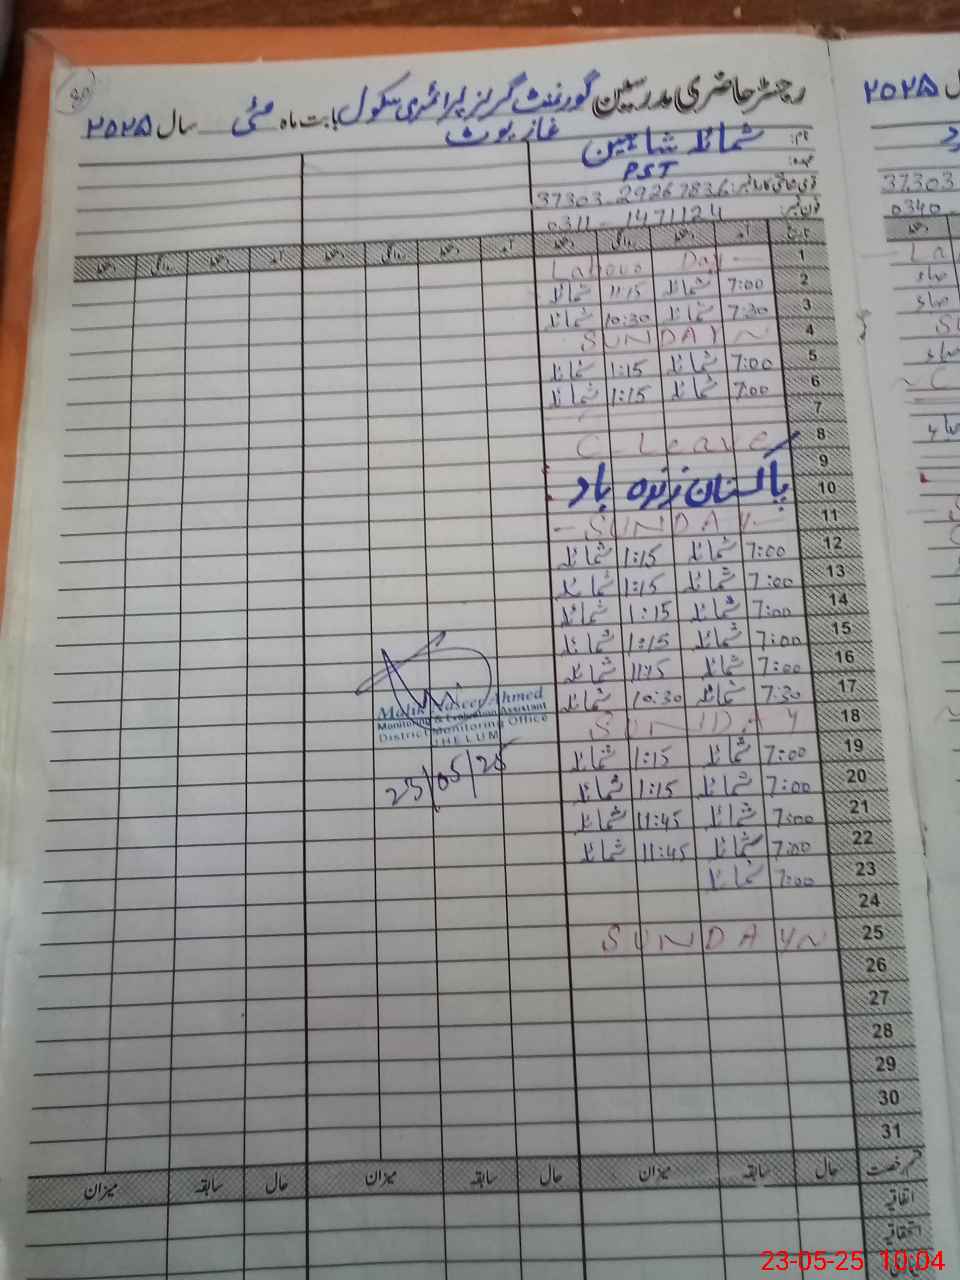 80
رجسٹر حاضری مدرسین گورنمنٹ گرلز پرائمری سکول بابت ماہ مئی سال ۲۰۲۵
نام: شمائلہ شاہین
عہدہ: PST
قومی شناختی کارڈ نمبر: 37303 29267836
فون نمبر: 0311-1471124
تاریخ آمد دستخط روانگی دستخط آمد دستخط روانگی دستخط آمد دستخط روانگی دستخط
1 Day
2 7:00 شمائلہ 11:15 شمائلہ
3 7:30 شمائلہ 10:30 شمائلہ
4 SUNDAY
5 7:00 شمائلہ 1:15 شمائلہ
6 7:00 شمائلہ 1:15 شمائلہ
7
8 C Leave
9
10 پاکستان زندہ باد
11 SUNDAY
12 7:00 شمائلہ 1:15 شمائلہ
13 7:00 شمائلہ 1:15 شمائلہ
14 7:00 شمائلہ 1:15 شمائلہ
15 7:00 شمائلہ 1:15 شمائلہ
16 7:00 شمائلہ 11:15 شمائلہ
17 7:30 شمائلہ 10:30 شمائلہ
18 SUNDAY
19 7:00 شمائلہ 1:15 شمائلہ
20 7:00 شمائلہ 1:15 شمائلہ
21 7:00 شمائلہ 11:45 شمائلہ
22 7:00 شمائلہ 11:45 شمائلہ
23 7:00 شمائلہ
24
25 SUNDAY
26
27
28
29
30
31
Malik Naseer Ahmed
Monitoring & Evaluation Assistant
District Monitoring Office
JHELUM
23/05/25
قسم رخصت حال سابقہ میزان حال سابقہ میزان حال سابقہ میزان
اتفاقیہ
استحقاقیہ
۲۰۲۵
37303
0340
23-05-25 10:04